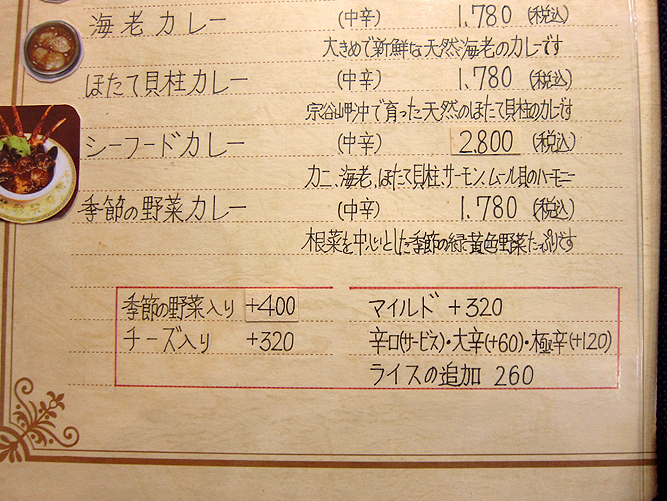 海老カレー (中辛) 1,780 (税込)
大きめで新鮮な天然海老のカレーです
ほたて貝柱カレー (中辛) 1,780 (税込)
宗谷岬沖で育った天然のほたて貝柱のカレーです
シーフードカレー (中辛) 2.800 (税込)
カニ、海老、ほたて貝柱、サーモン、ムール貝のハーモニー
季節の野菜カレー (中辛) 1,780 (税込)
根菜を中心とした季節の緑黄色野菜たっぷりです
季節の野菜入り +400
チーズ入り +320
マイルド +320
辛口(サービス)・大辛(+60)・極辛(+120)
ライスの追加 260